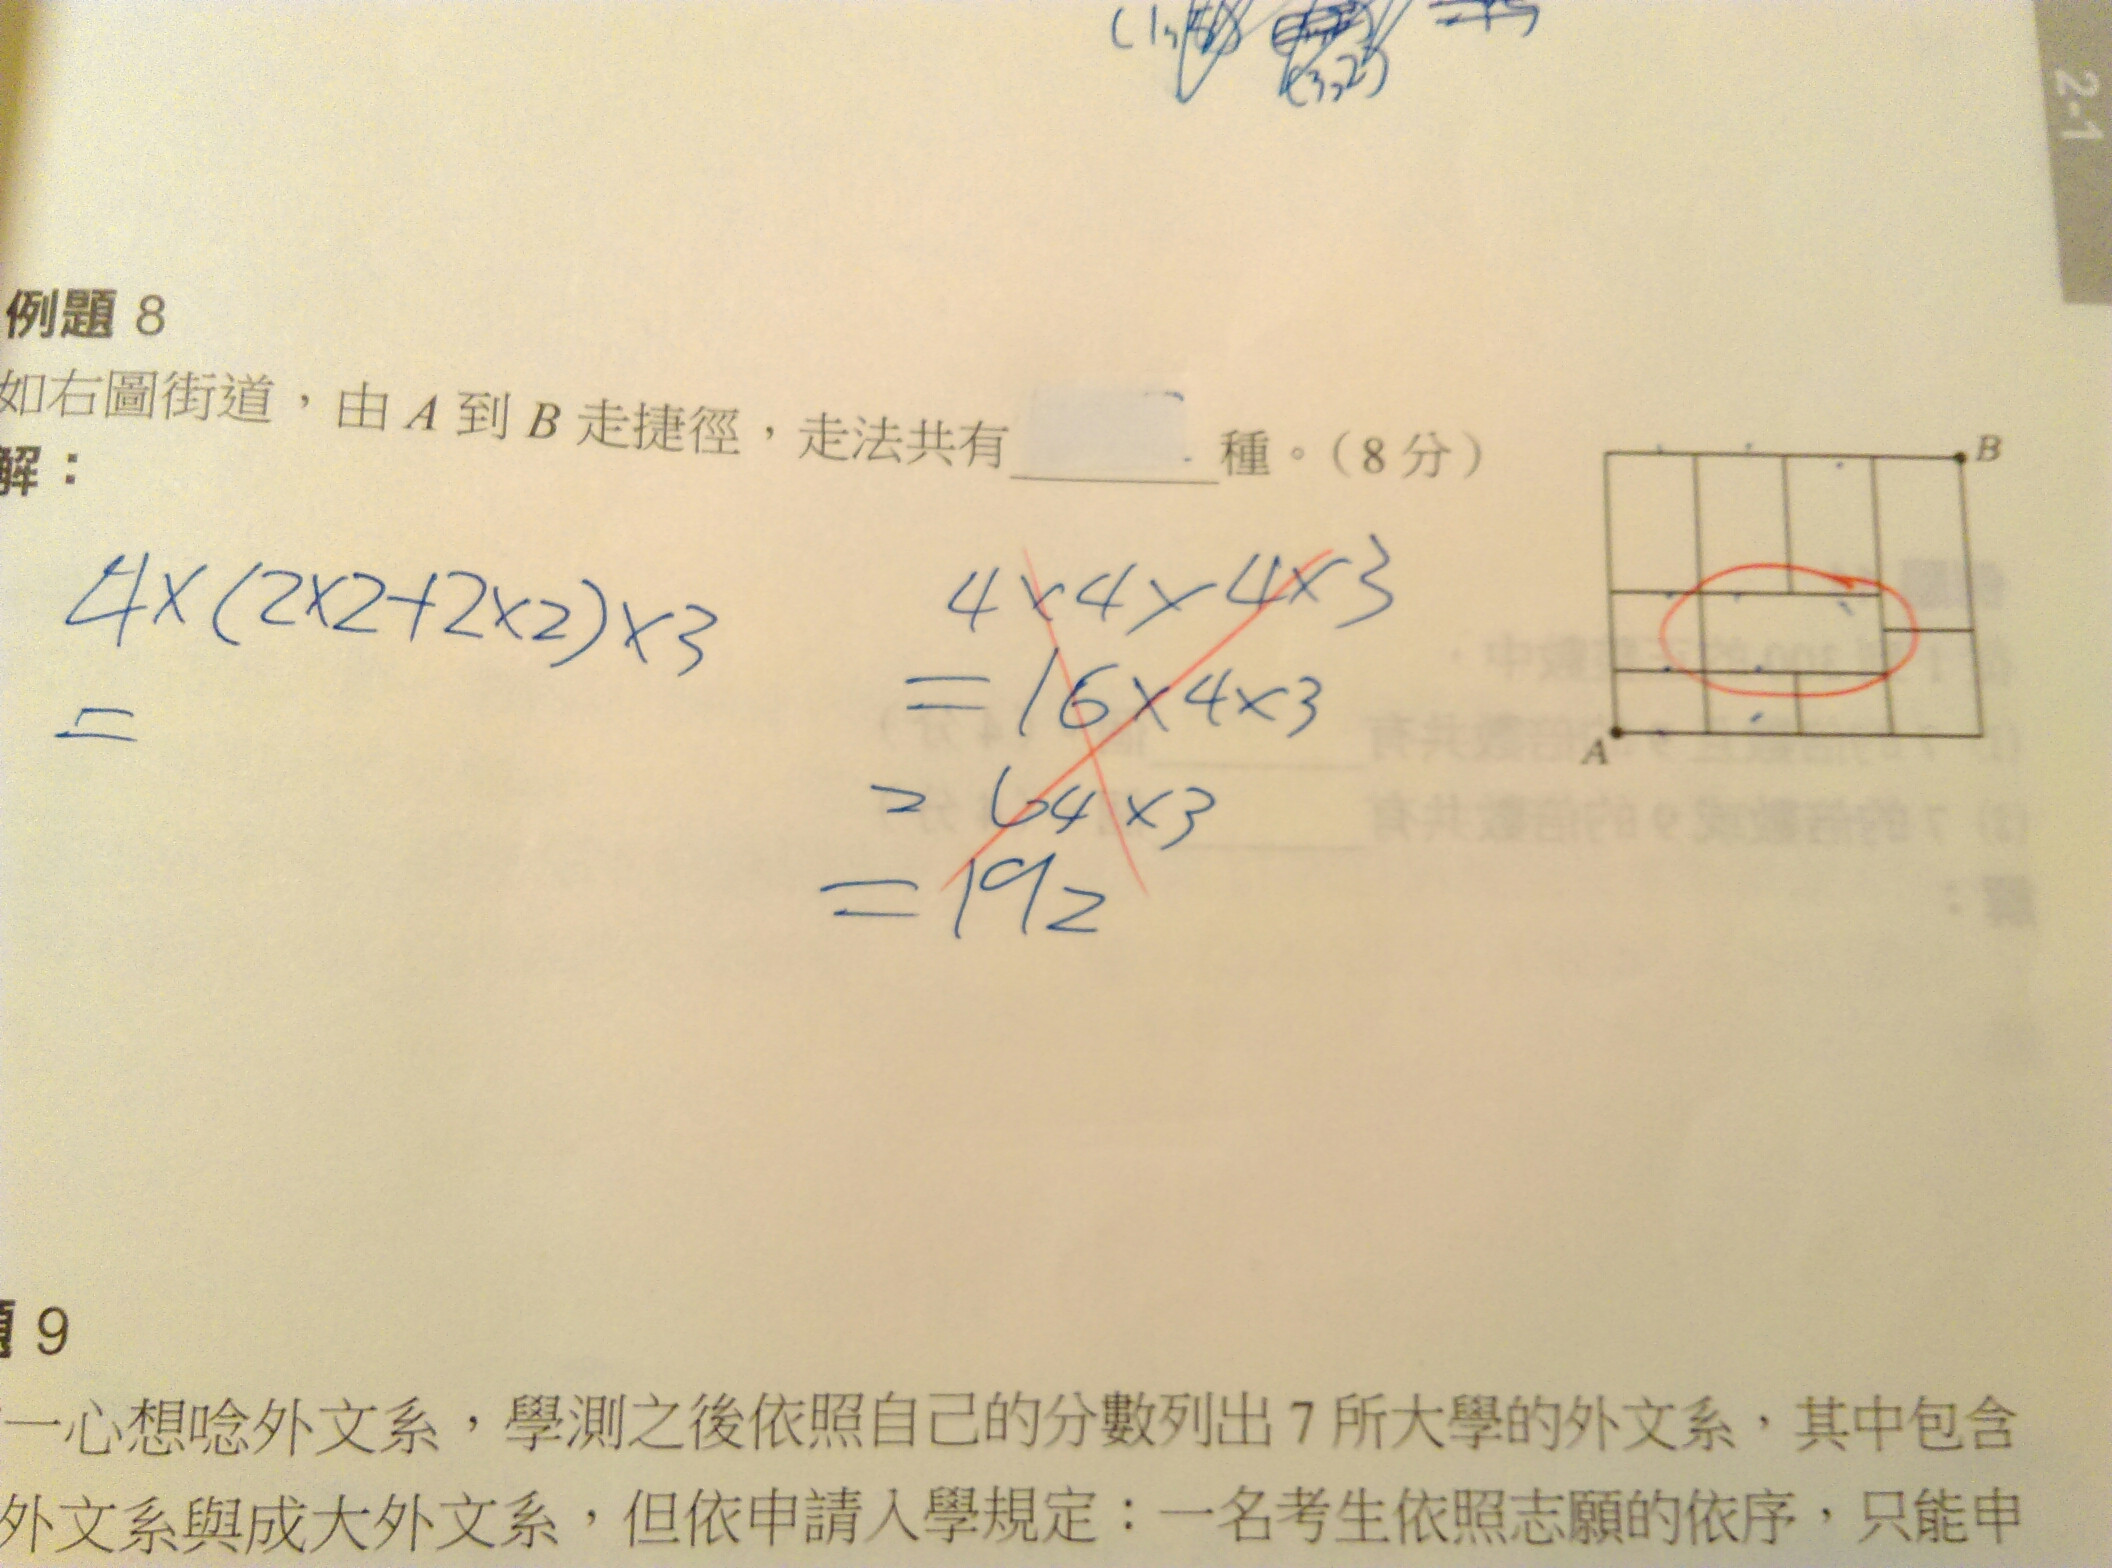 2-1
(3,2)
例題 8
如右圖街道，由 A 到 B 走捷徑，走法共有 種。(8分)
解：
B
A
4×(2×2+2×2)×3
=
4×4×4×3
=16×4×3
=64×3
=192
題 9
一心想唸外文系，學測之後依照自己的分數列出 7 所大學的外文系，其中包含
外文系與成大外文系，但依申請入學規定：一名考生依照志願的依序，只能申